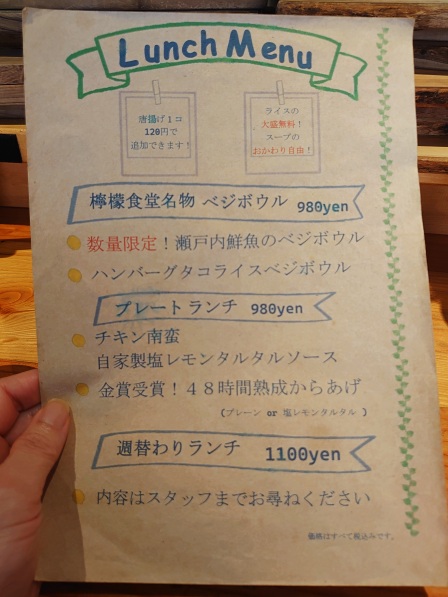 Lunch Menu
唐揚げ1コ
120円で
追加できます！
ライスの
大盛無料！
スープの
おかわり自由！
檸檬食堂名物 ベジボウル 980yen
数量限定！瀬戸内鮮魚のベジボウル
ハンバーグタコライスベジボウル
プレートランチ 980yen
チキン南蛮
自家製塩レモンタルタルソース
金賞受賞！４８時間熟成からあげ
(プレーン or 塩レモンタルタル )
週替わりランチ 1100yen
内容はスタッフまでお尋ねください
価格はすべて税込みです。